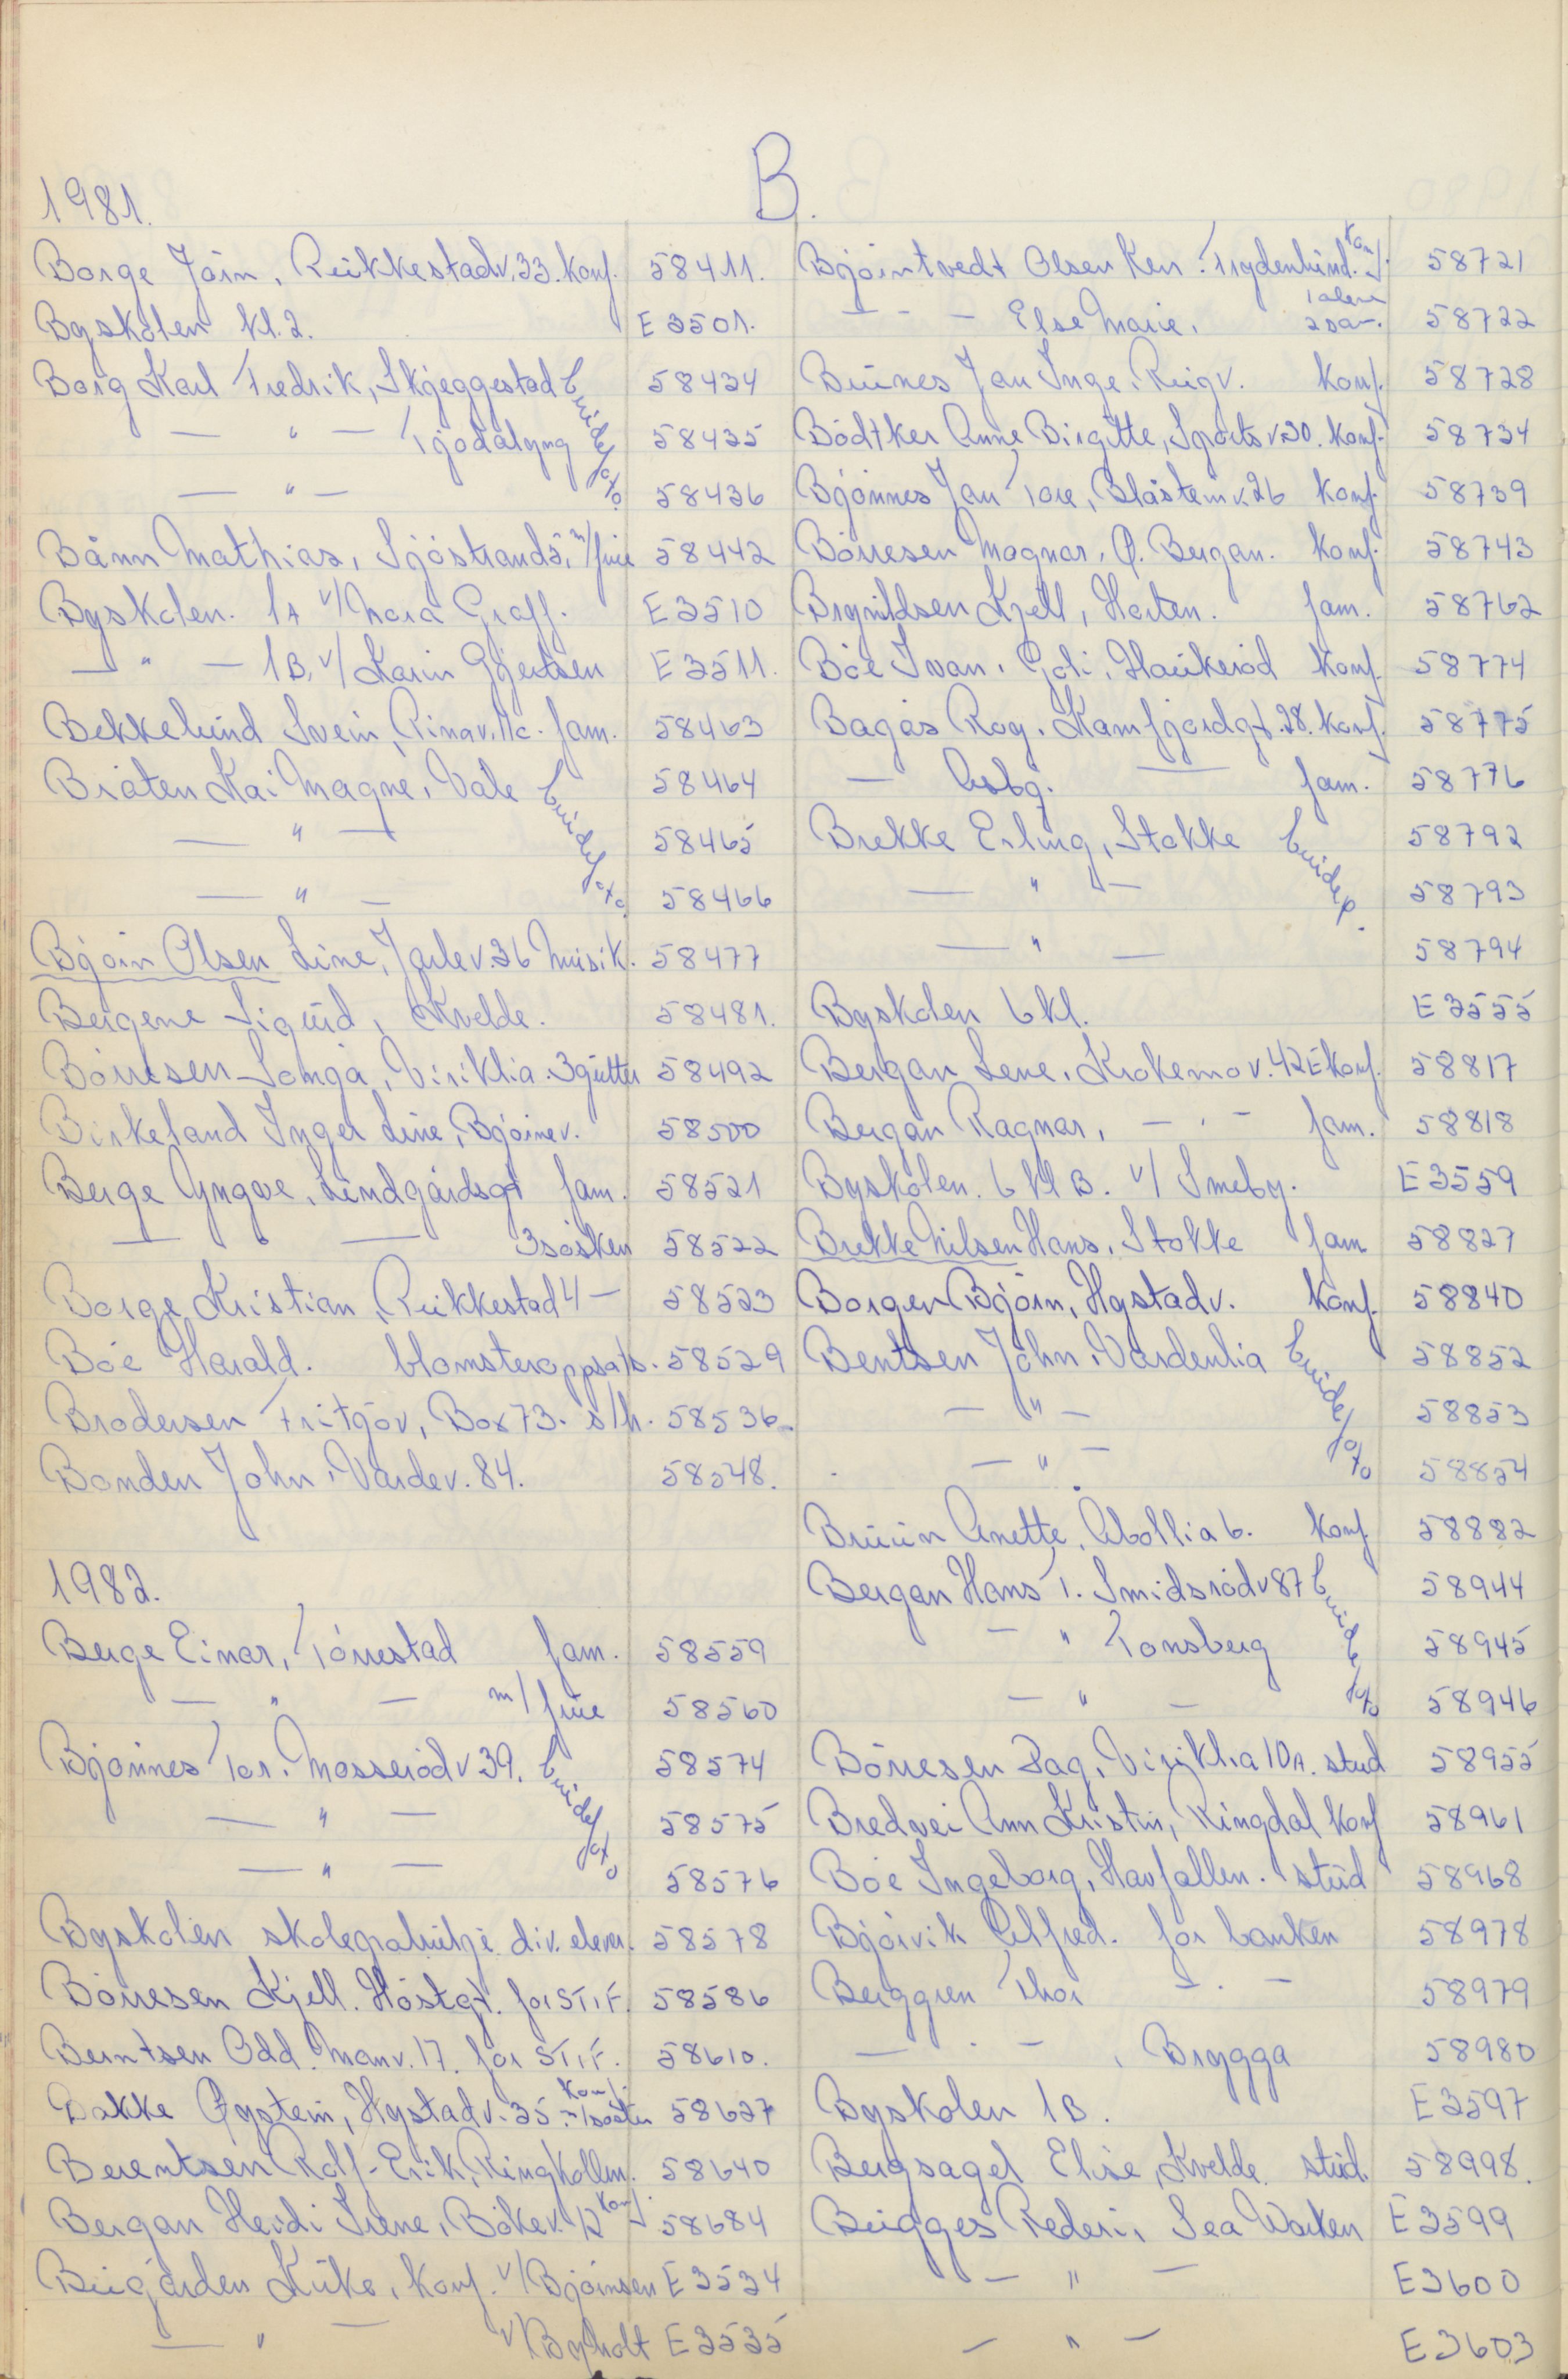 B.
1981.
Borge Jörn, Rükkestadv. 33. konf. 58411.
Byskolen kl. 2. E 3501.
Borg Karl Fredrik, Skjeggestad brudefoto 58434
— " — Tjodalyng 58435
— " — 58436
Bånn Mathias, Sjöstrandö, m/frue 58442
Byskolen. 1A v/ Nora Graff. E 3510
— " — 1B, v/ Karin Gjertsen E 3511.
Bekkelund Svein, Rinav. 11c. fam. 58463
Bråten Kai Magne, Vale brudefoto 58464
— " — 58465
— " — 58466
Björn Olsen Line, Jarlev. 36 musik. 58477
Bergene Sigurd, Kvelde. 58481.
Börresen Sonja, Viriklia. 3 gutter 58492
Birkeland Inger Line, Björnev. 58500
Berge Yngve, Lindgårdsgt fam. 58521
— " — 3 sösken 58522
Borge Kristian, Rükkestad 4 — 58523
Böe Harald. blomsteroppsats. 58529
Brodersen Fritjöv, Box 73. s/h. 58536
Bonden John, Vardev. 84. 58548.
1982.
Berge Einar, Törrestad fam. 58559
— " — m/ frue 58560
Bjönnes Tor. Mosserödv 39. brudefoto 58574
— " — 58575
— " — 58576
Byskolen skolegalutje div. elever. 58578
Börresen Kjell. Höstgt. for STIF. 58586
Berntsen Odd. Monv. 17. for STIF. 58610.
Bakke Øystein, Hystadv. 35. konf. m/söster 58637
Berentsen Rolf-Erik, Ringkollen. 58640
Bergan Heidi Irene, Bökev. 12 konf. 58684
Bugården Kirke, konf. v/ Björnsen E 3534
— " — v/ Byholt E 3535
Björntvedt Olsen Ken. Frydenlund. konf. 58721
— " — Else Marie. 1 alene 2 sam. 58722
Buines Jan Inge, Ringv. konf. 58728
Bödtker Anne Birgitte, Sportsv 30. konf. 58734
Bjönnes Jan Tore, Blåsteinv. 26 konf. 58739
Börresen Magnar, Ø. Bergan. konf. 58743
Brynildsen Kjell, Horten. fam. 58762
Böe Ivan, Goli, Haukeröd konf. 58774
Bagås Roy. Kamfjordgt. 28. konf. 58775
— Asbj. — fam. 58776
Brekke Erling, Stokke brudep. 58792
— " — 58793
— " — 58794
Byskolen 6 kl. E 3555
Bergan Lene, Krokemov. 42E konf. 58817
Bergan Ragnar, — " — fam. 58818
Byskolen. 6 kl B. v/ Smeby. E 3559
Brekke Nilsen Hans, Stokke fam 58827
Borgen Björn, Hystadv. konf. 58840
Bentsen John, Vardenlia brudefoto 58852
— " — 58853
— " — 58854
Bruun Anette, Abollia 6. konf 58882
Bergan Hans T. Smidsrödv 87 brudefoto 58944
— " Tonsberg 58945
— " — 58946
Börresen Dag, Viriklia 10A. stud 58955
Bredvei Ann Kristin, Ringdal konf 58961
Böe Ingeborg, Havfallen. stud 58968
Björvik Alfred. for banken 58978
Berggren Thor — " — 58979
— " — , Brygga 58980
Byskolen 1B. E 3597
Bergsagel Elise, Kvelde stud. 58998.
Brügges Rederi, Sea Worken E 3599
— " — E 3600
— " — E 3603